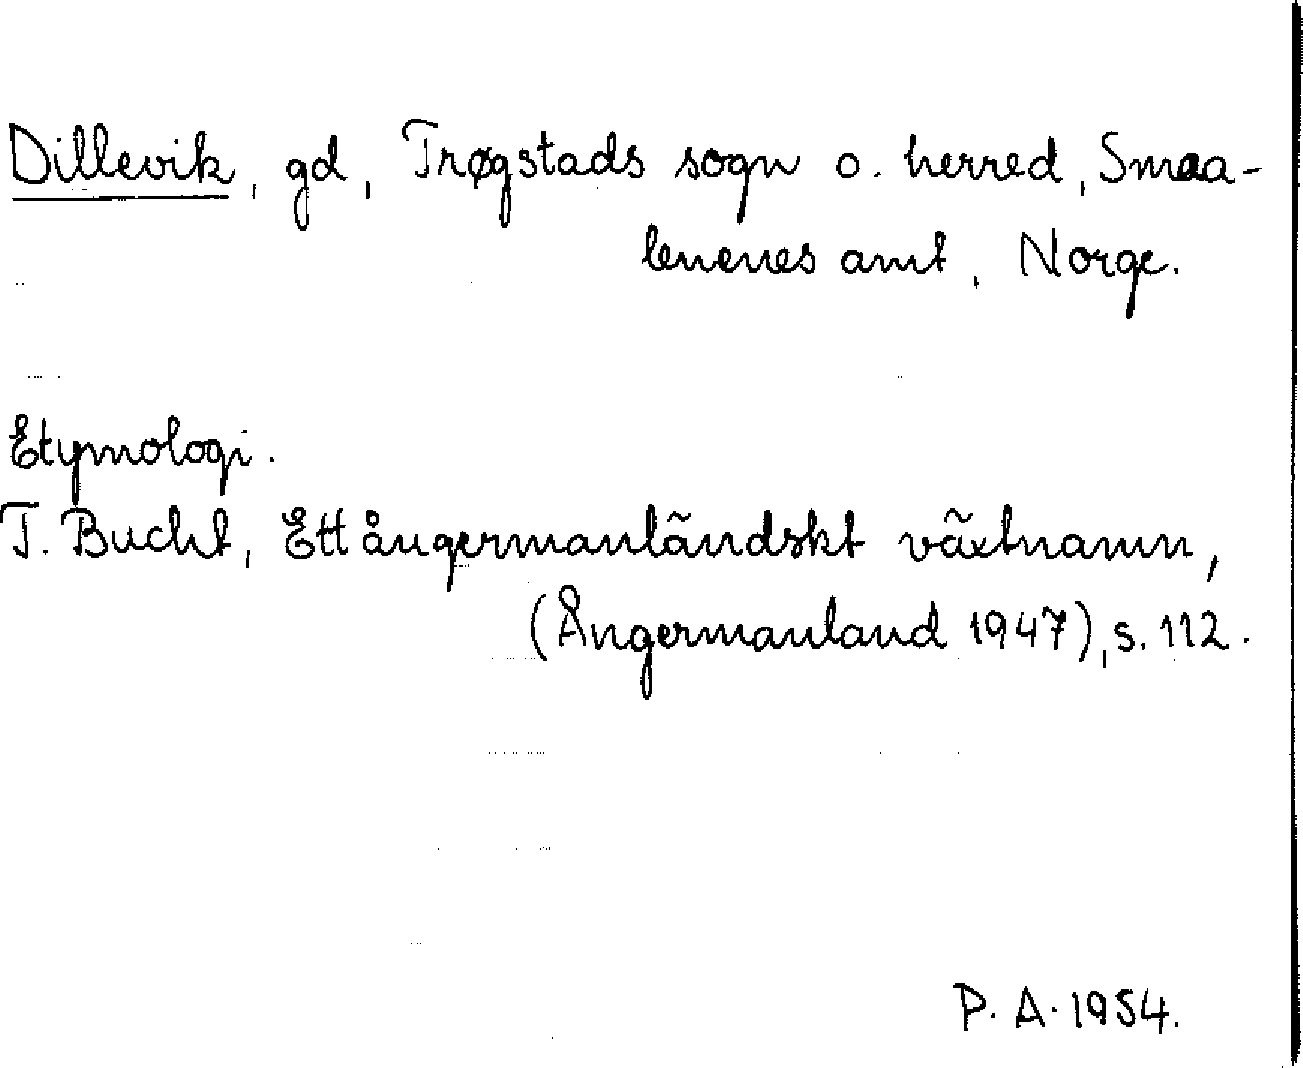 Dillevik, gd, Trøgstads sogn o. herred, Smaa-
lenenes amt, Norge.
Etymologi.
T. Bucht, Ett ångermanländskt växtnamn,
(Ångermanland 1947), s. 112.
P. A. 1954.